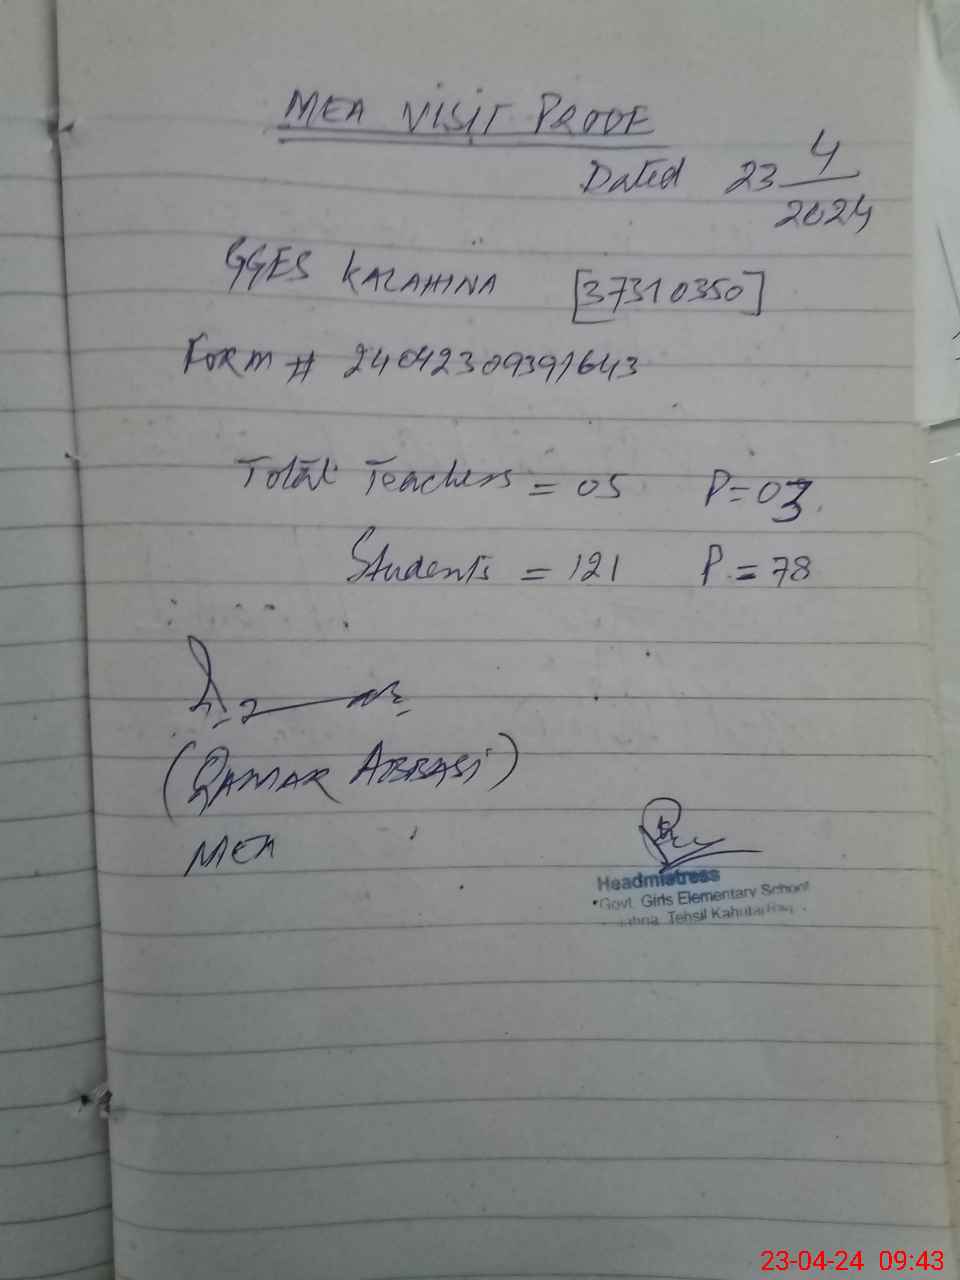 MEA VISIT PROOF
Dated 23 4/2024
GGES KALAHNA [37310350]
Form # 24042309391643
Total Teachers = 05 P=03
Students = 121 P=78
(QAMAR ABBASI)
MEA
Headmistress
Govt. Girls Elementary School
Tehsil Kahuta
23-04-24 09:43